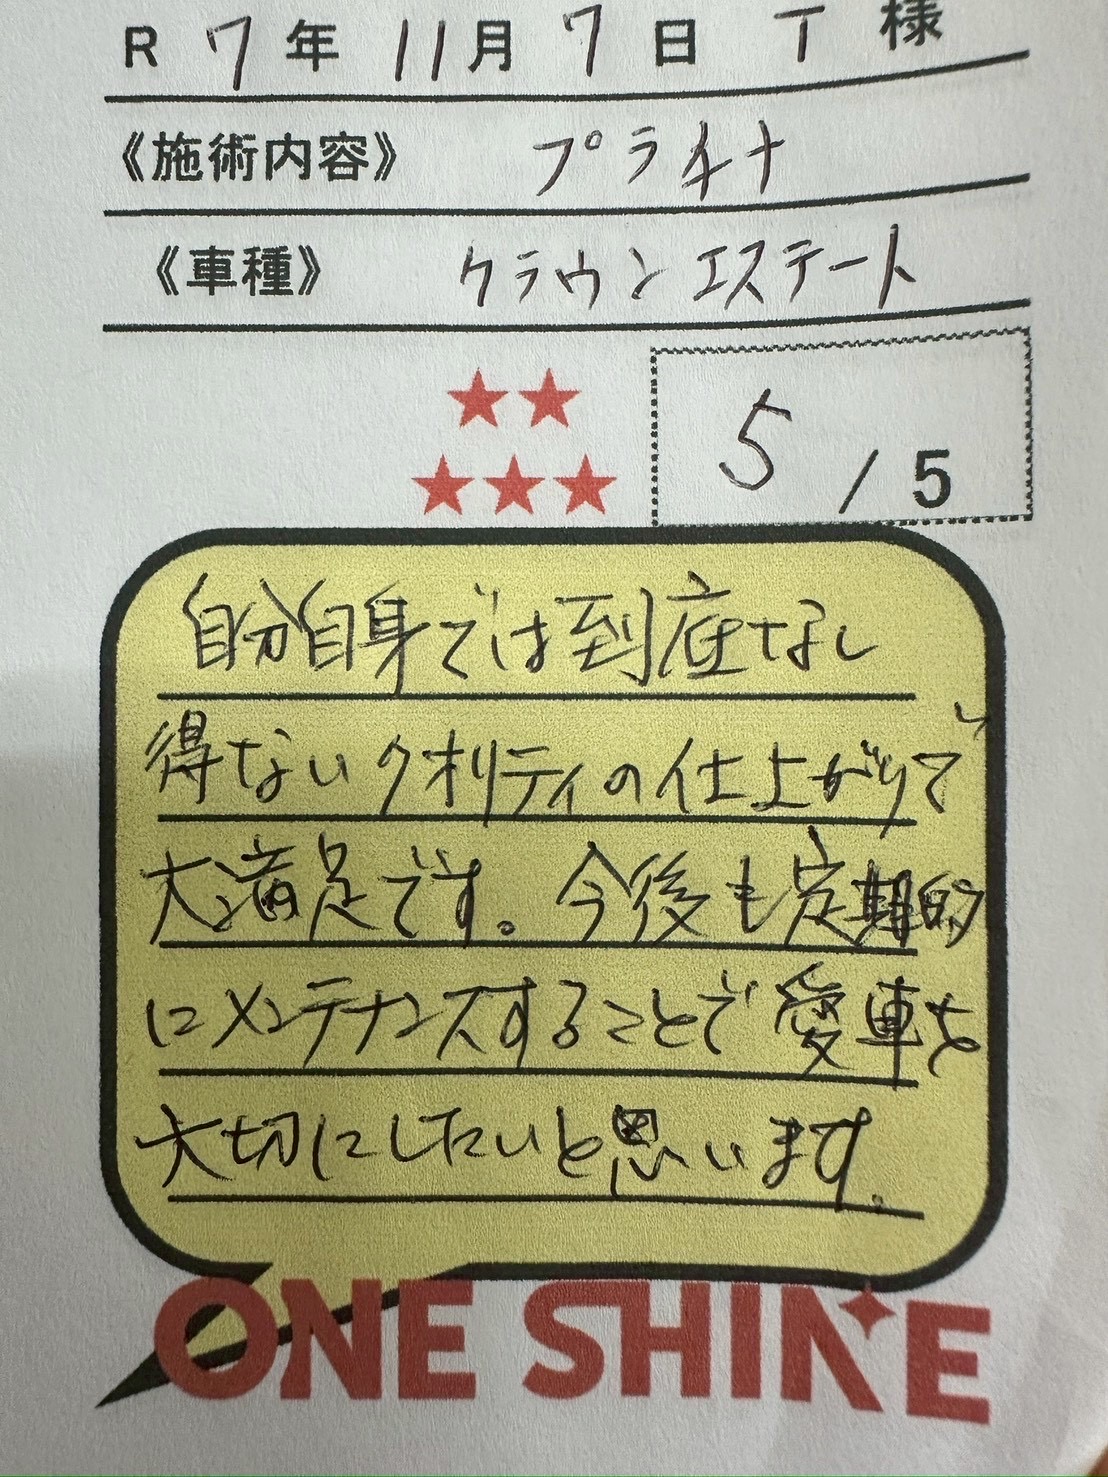 R 7年 11月 7日 T 様
《施術内容》 プラチナ
《車種》 クラウンエステート
★★
★★★
5 / 5
自分自身では到底なし
得ないクオリティの仕上がりで
大満足です。今後も定期的
にメンテナンスすることで愛車を
大切にしたいと思います。
ONE SHINE